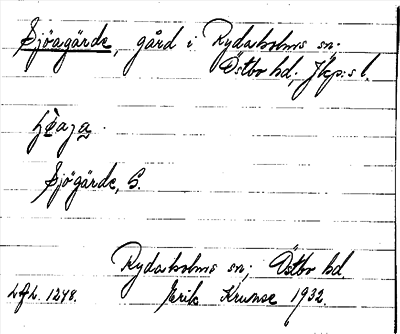 Sjöagärde, gård i Rydaholms sn;
Östbo hd; Jkp:s l.
Sjögärde, S.
Rydaholms sn; Östbo hd
1248. Erik Krunse 1932.